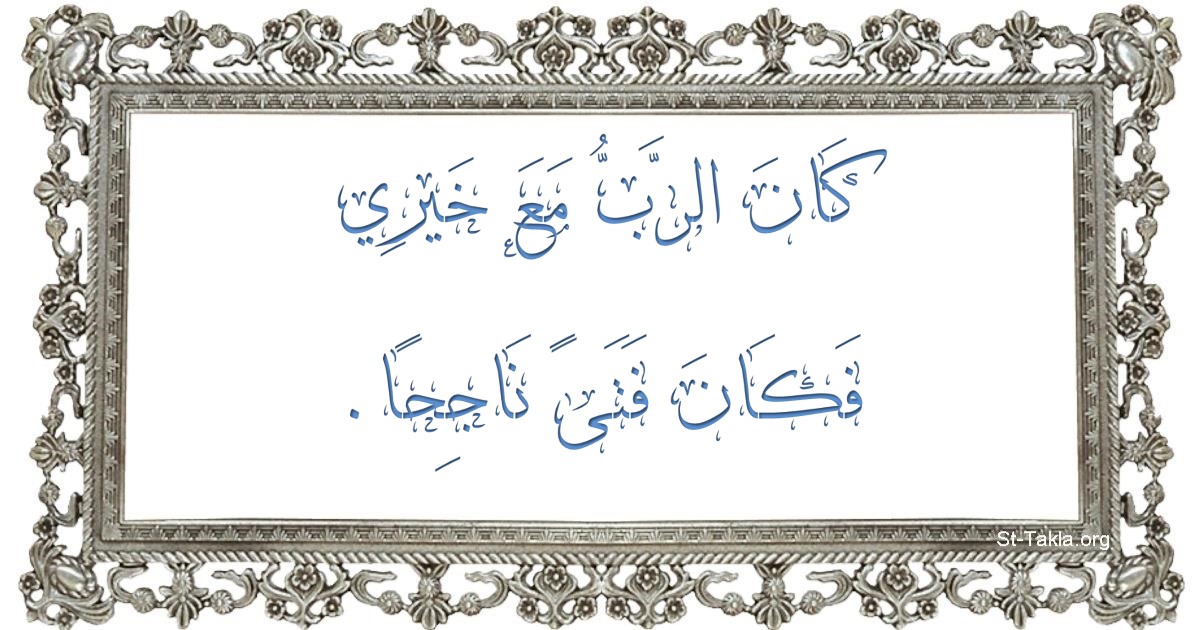 كَانَ الرَّبُّ مَعَ خَيْرِي
فَكَانَ فَتَىً نَاجِحًا .
St-Takla.org